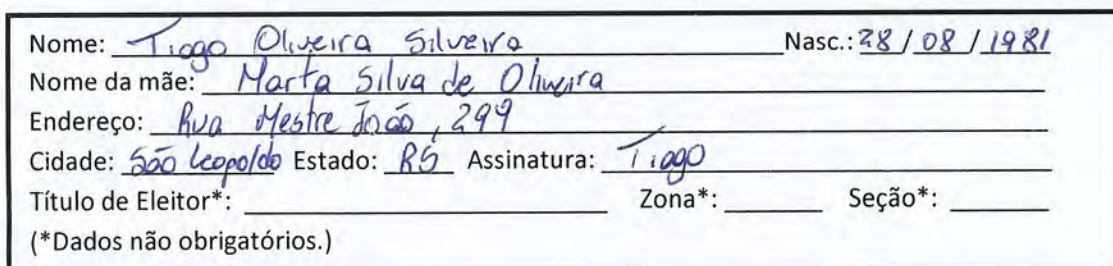 Nome: Tiago Oliveira Silveira Nasc.: 28 / 08 / 1981
Nome da mãe: Marta Silva de Oliveira
Endereço: Rua Mestre João, 299
Cidade: São Leopoldo Estado: RS Assinatura: Tiago
Título de Eleitor*: Zona*: Seção*:
(*Dados não obrigatórios.)